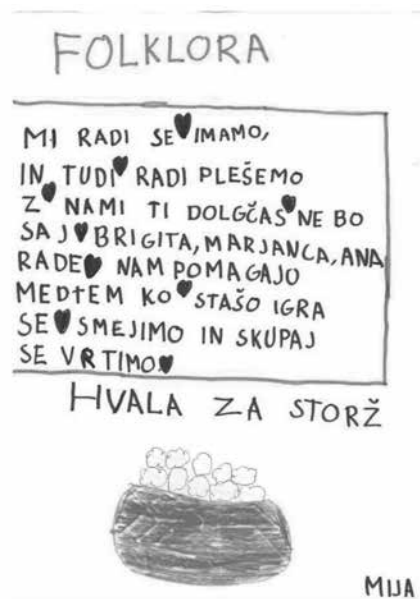 FOLKLORA
MI RADI SE♥IMAMO,
IN TUDI♥RADI PLEŠEMO
Z♥NAMI TI DOLGČAS♥NE BO
SAJ♥BRIGITA, MARJANCA, ANA
RADE♥NAM POMAGAJO
MEDTEM KO♥STAŠO IGRA
SE♥SMEJIMO IN SKUPAJ
SE VRTIMO♥
HVALA ZA STORŽ
MIJA